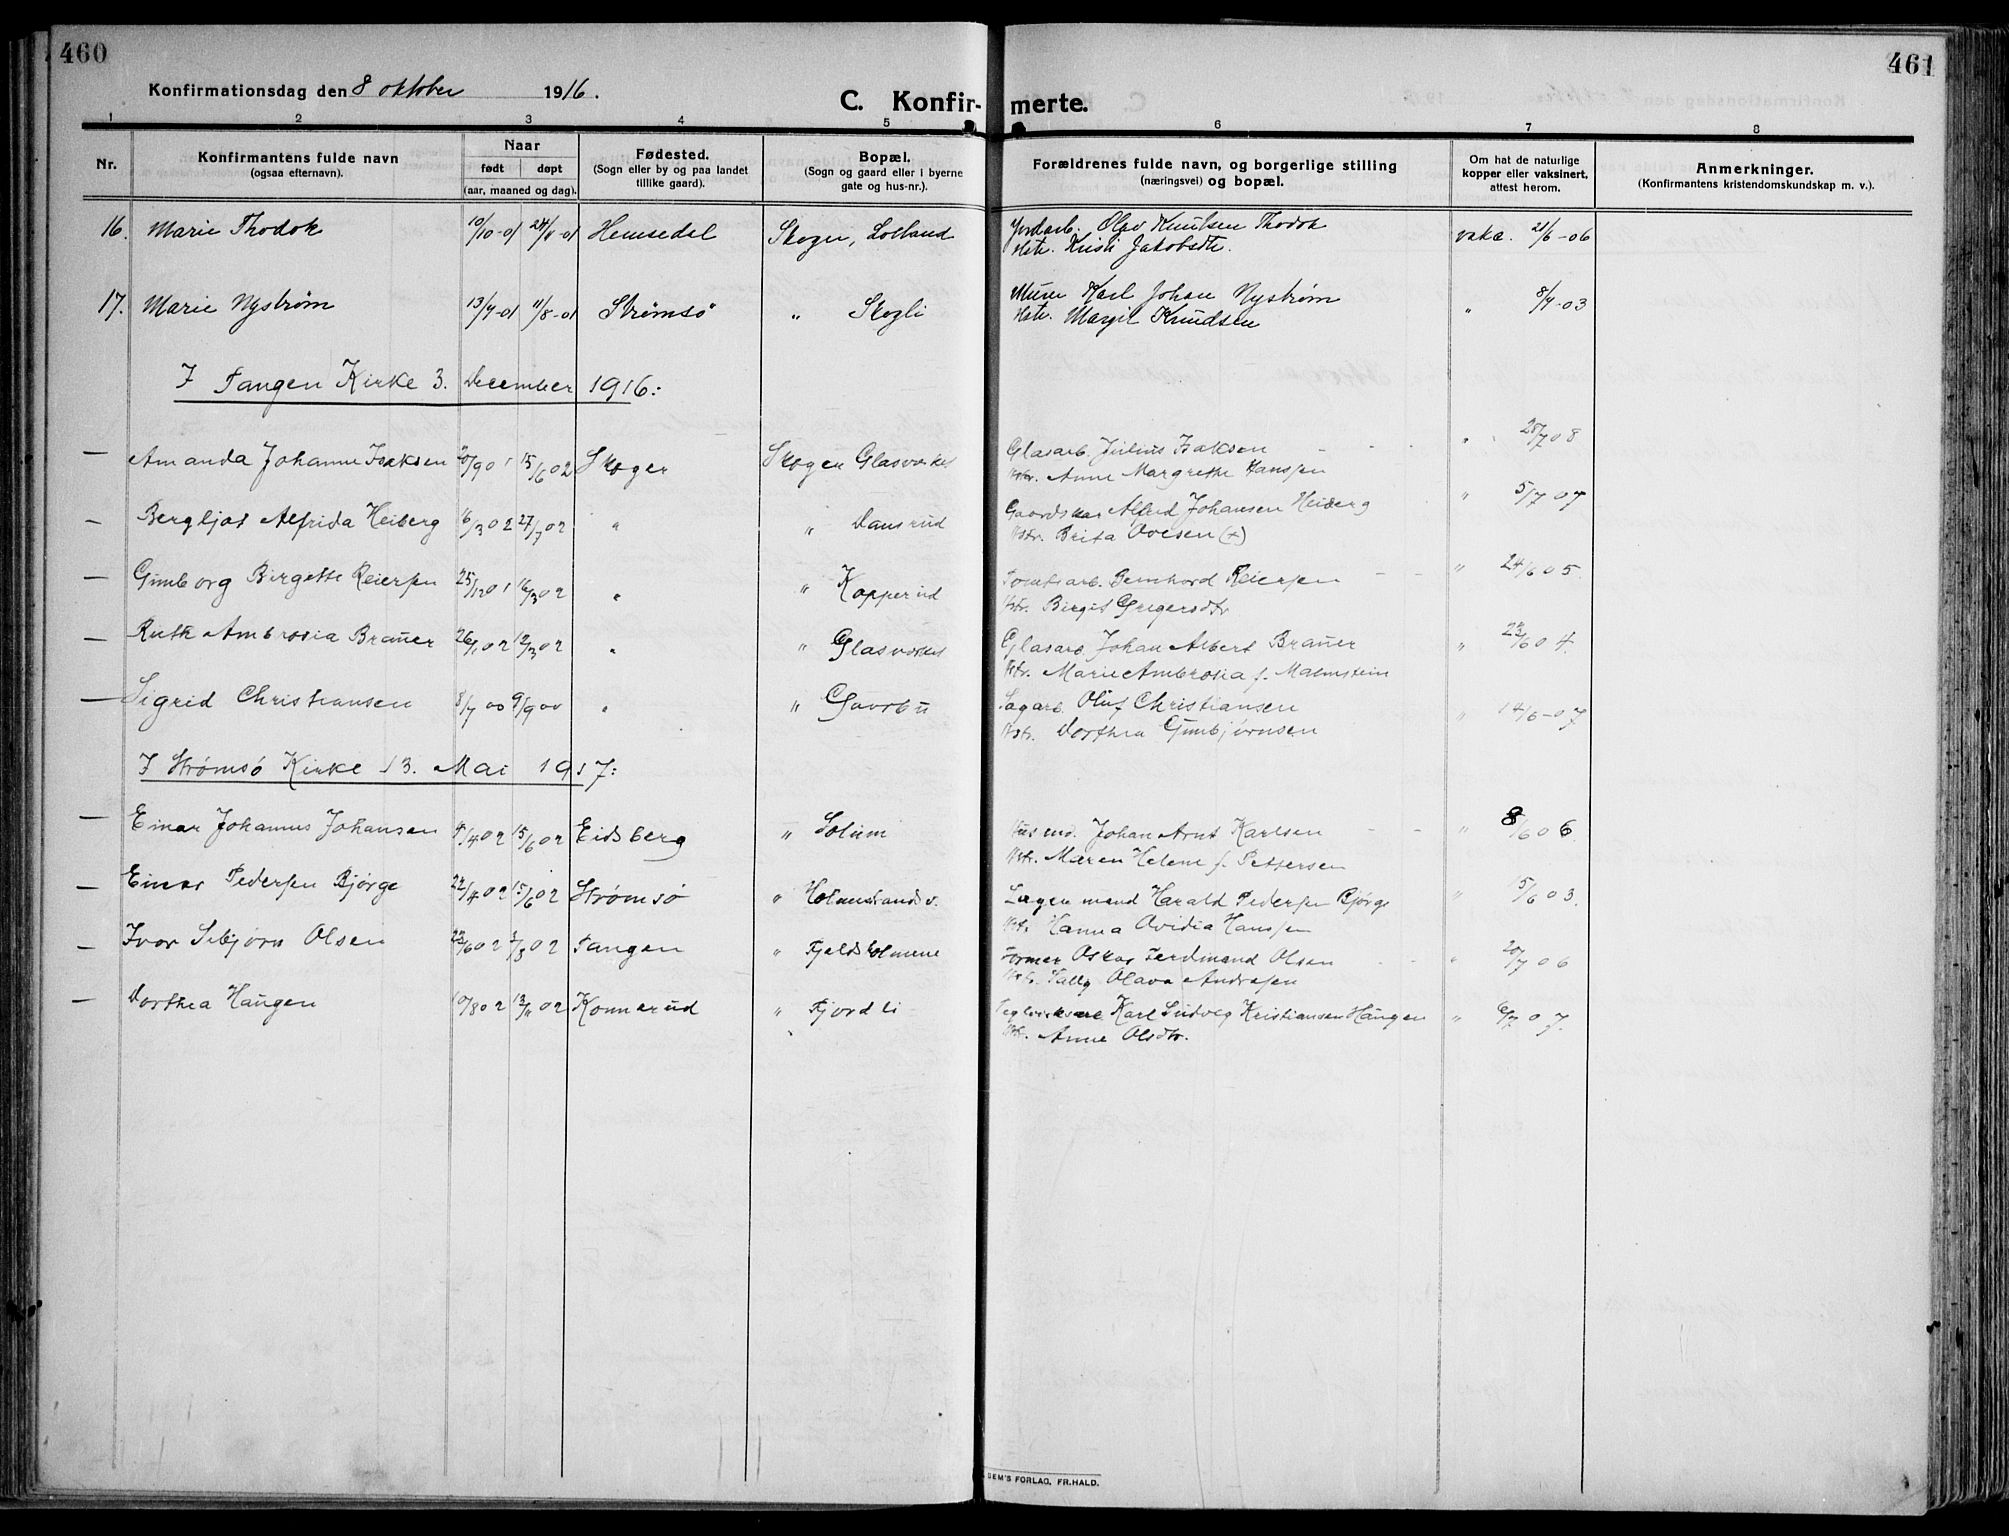 460
461
Konfirmationsdag den 8 oktober 1916.
C. Konfir-merte.
1 2 3 4 5 6 7 8
Nr.
Konfirmantens fulde navn
(ogsaa efternavn).
Naar
født døpt
(aar, maaned og dag).
Fødested.
(Sogn eller by og paa landet
tillike gaard).
Bopæl.
(Sogn og gaard eller i byerne
gate og hus-nr.).
Forældrenes fulde navn, og borgerlige stilling
(næringsvei) og bopæl.
Om hat de naturlige
kopper eller vaksinert,
attest herom.
Anmerkninger.
(Konfirmantens kristendomskundskap m. v.).
16. Marie Thodok 10/10-01 24/11-01 Hemsedal Skoger, Solland Jordarb. Olav Knutsen Thodok vakc. 21/6-06
Hstr. Kristi Jakobsdtr.
17. Marie Nystrøm 13/7-01 11/8-01 Strømsø " Skogli Murer Karl Johan Nystrøm " 8/9-03
Hstr. Margit Knudsen
I Tangen Kirke 3. December 1916:
— Amanda Johanne Isaksen 20/9 01 15/6 02 Skoger Skogen Glasværket Glasarb. Julius Isaksen " 28/7 08
Hstr. Anne Margrethe Hanssen
— Bergljot Alfrida Heiberg 16/3 02 27/7 02 " " Dansrud Alfred Johansen Heiberg " 5/7 07
Hstr. Brita Ovesen (+)
— Gunborg Birgette Reiersen 25/12 01 16/3 02 " " Kopperud Tomtearb. Bernhard Reiersen " 24/6 05.
Hstr. Birgit Gregersdtr
— Ruth Ambrosia Braüer 26/1 02 12/3 02 " " Glasværket Glasarb. Johan Albert Braüer " 22/6 04.
Hstr. Marie Ambrosia f. Malmstein
— Sigrid Christiansen 8/7 00 9/9 00 " " Gaarbu Sagarb. Oluf Christiansen " 14/6-07
Hstr. Dorthea Gunbjørnsen
I Strømsø Kirke 13. Mai 1917:
— Einar Johannes Johansen 4/4 02 15/6 02 Eidsberg " Solum Husmd. Johan Arnt Karlsen " 8/6 06
Hstr. Maren Helene f. Pettersen
— Einar Pedersen Bjørge 22/4 02 15/6 02 Strømsø " Holmestrandsv. Lagermand Harald Pedersen Bjørge " 15/6 03.
Hstr. Hanna Ovidia Hanssen
— Ivar Sebjørn Olsen 23/6 02 3/8 02 Tangen " Fjeldsholmene Former Oskar Ferdinand Olsen " 20/7 06
Hstr. Vally Olava Andrasen
— Dorthea Haugen 10/8 02 13/11 02 Konnerud " Fjordli Teglverksarb Karl Ludvig Kristiansen Haugen " 6/7 07.
Hstr. Anne Olsdtr.
SEM'S FORLAG, FR.HALD.